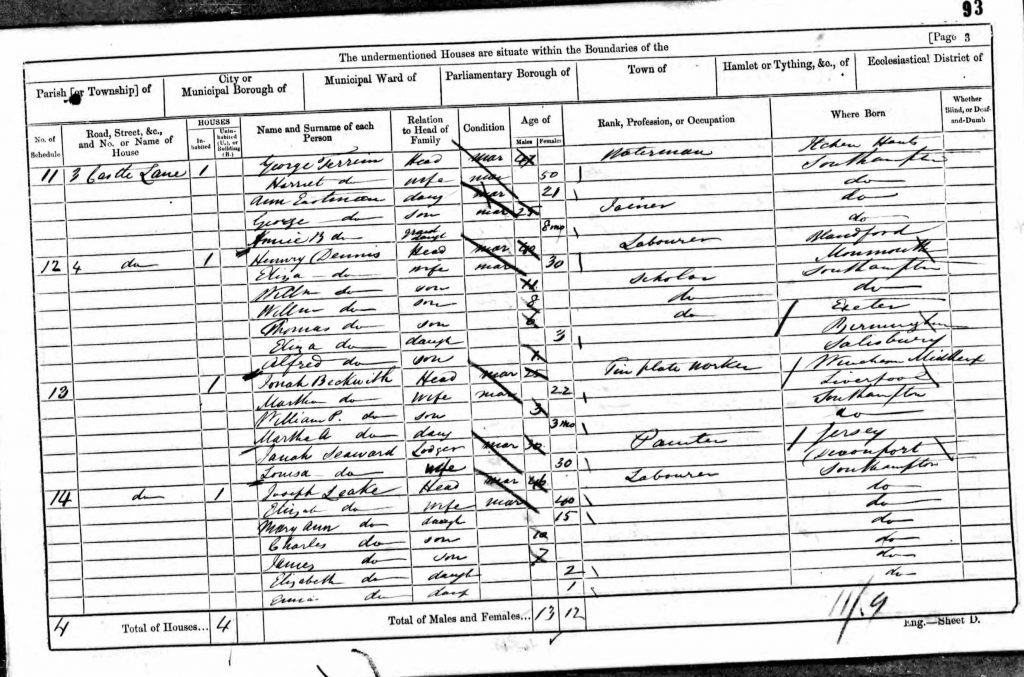 93
[Page 3
The undermentioned Houses are situate within the Boundaries of the
Parish [or Township] of
City or Municipal Borough of
Municipal Ward of
Parliamentary Borough of
Town of
Hamlet or Tything, &c., of
Ecclesiastical District of
No. of Schedule
Road, Street, &c., and No. or Name of House
HOUSES
In-habited
Unin-habited (U.), or Building (B.)
Name and Surname of each Person
Relation to Head of Family
Condition
Age of
Males
Females
Rank, Profession, or Occupation
Where Born
Whether Blind, or Deaf-and-Dumb
11 3 Castle Lane 1 George Head mar Waterman Itchen Hants
Harriet do wife mar 50 Southampton
Ann Eastman daug mar 21 do
George do son mar 25 Joiner do
Annie B do grand daugt 8 mo do
12 4 do 1 Dennis Head mar 40 Labourer Blandford
Eliza do wife mar 30 Monmouth
Willm do son 11 Scholar Southampton
do son 8 do do
Thomas do son 6 do Exeter
Eliza do daugh 3 Birmingham
Alfred do son Salisbury
13 1 Jonah Beckwith Head mar 25 Tin plate worker
Martha do Wife mar 22 Liverpool
William P. do son 3 Southampton
Martha A do daug 3 mo do
Seaward Lodger mar 30 Painter Jersey
Louisa do wife 30 Devonport
14 do 1 Joseph Leake Head mar 46 Labourer Southampton
Elizab do wife mar 40 do
Mary Ann do daugh 15 do
Charles do son 10 do
James do son 7 do
Elizabeth do daugh 2 do
do 1 do
4 Total of Houses... 4 Total of Males and Females... 13 12
Eng.—Sheet D.